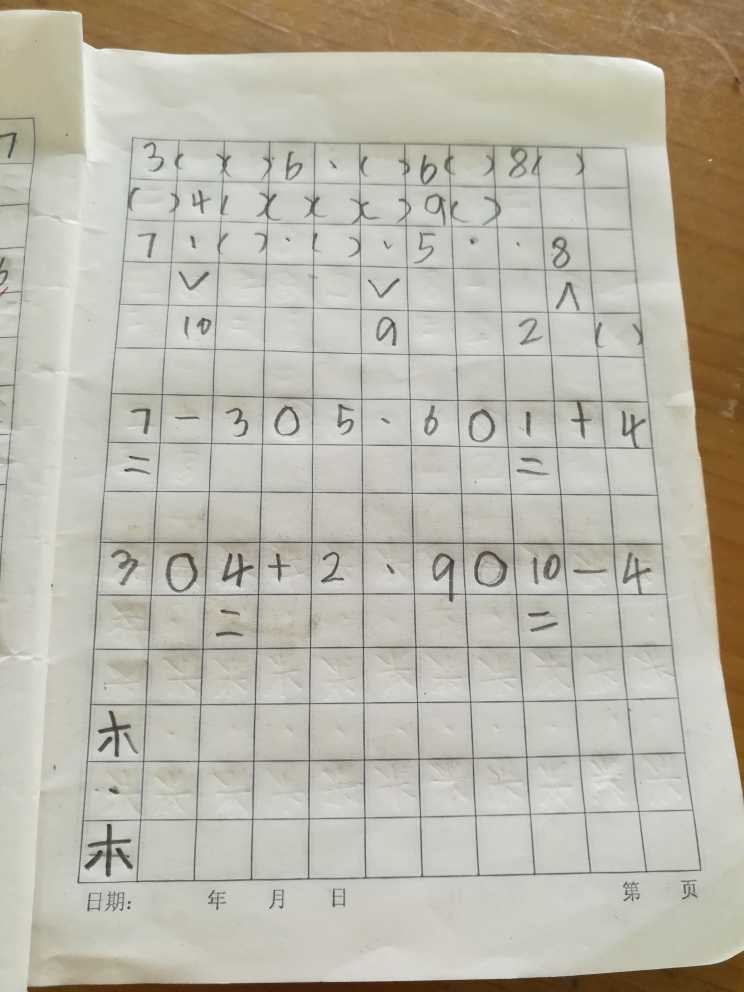 3( )( )6、( )6( )8( )
( )4( )( )( )( )9( )
7、( )、( )、5 · · 8
∨ ∨ ∧
10 9 2 ( )
7-3○5、6○1+4
= =
3○4+2、9○10-4
= =
木
·
木
日期: 年 月 日 第 页
7